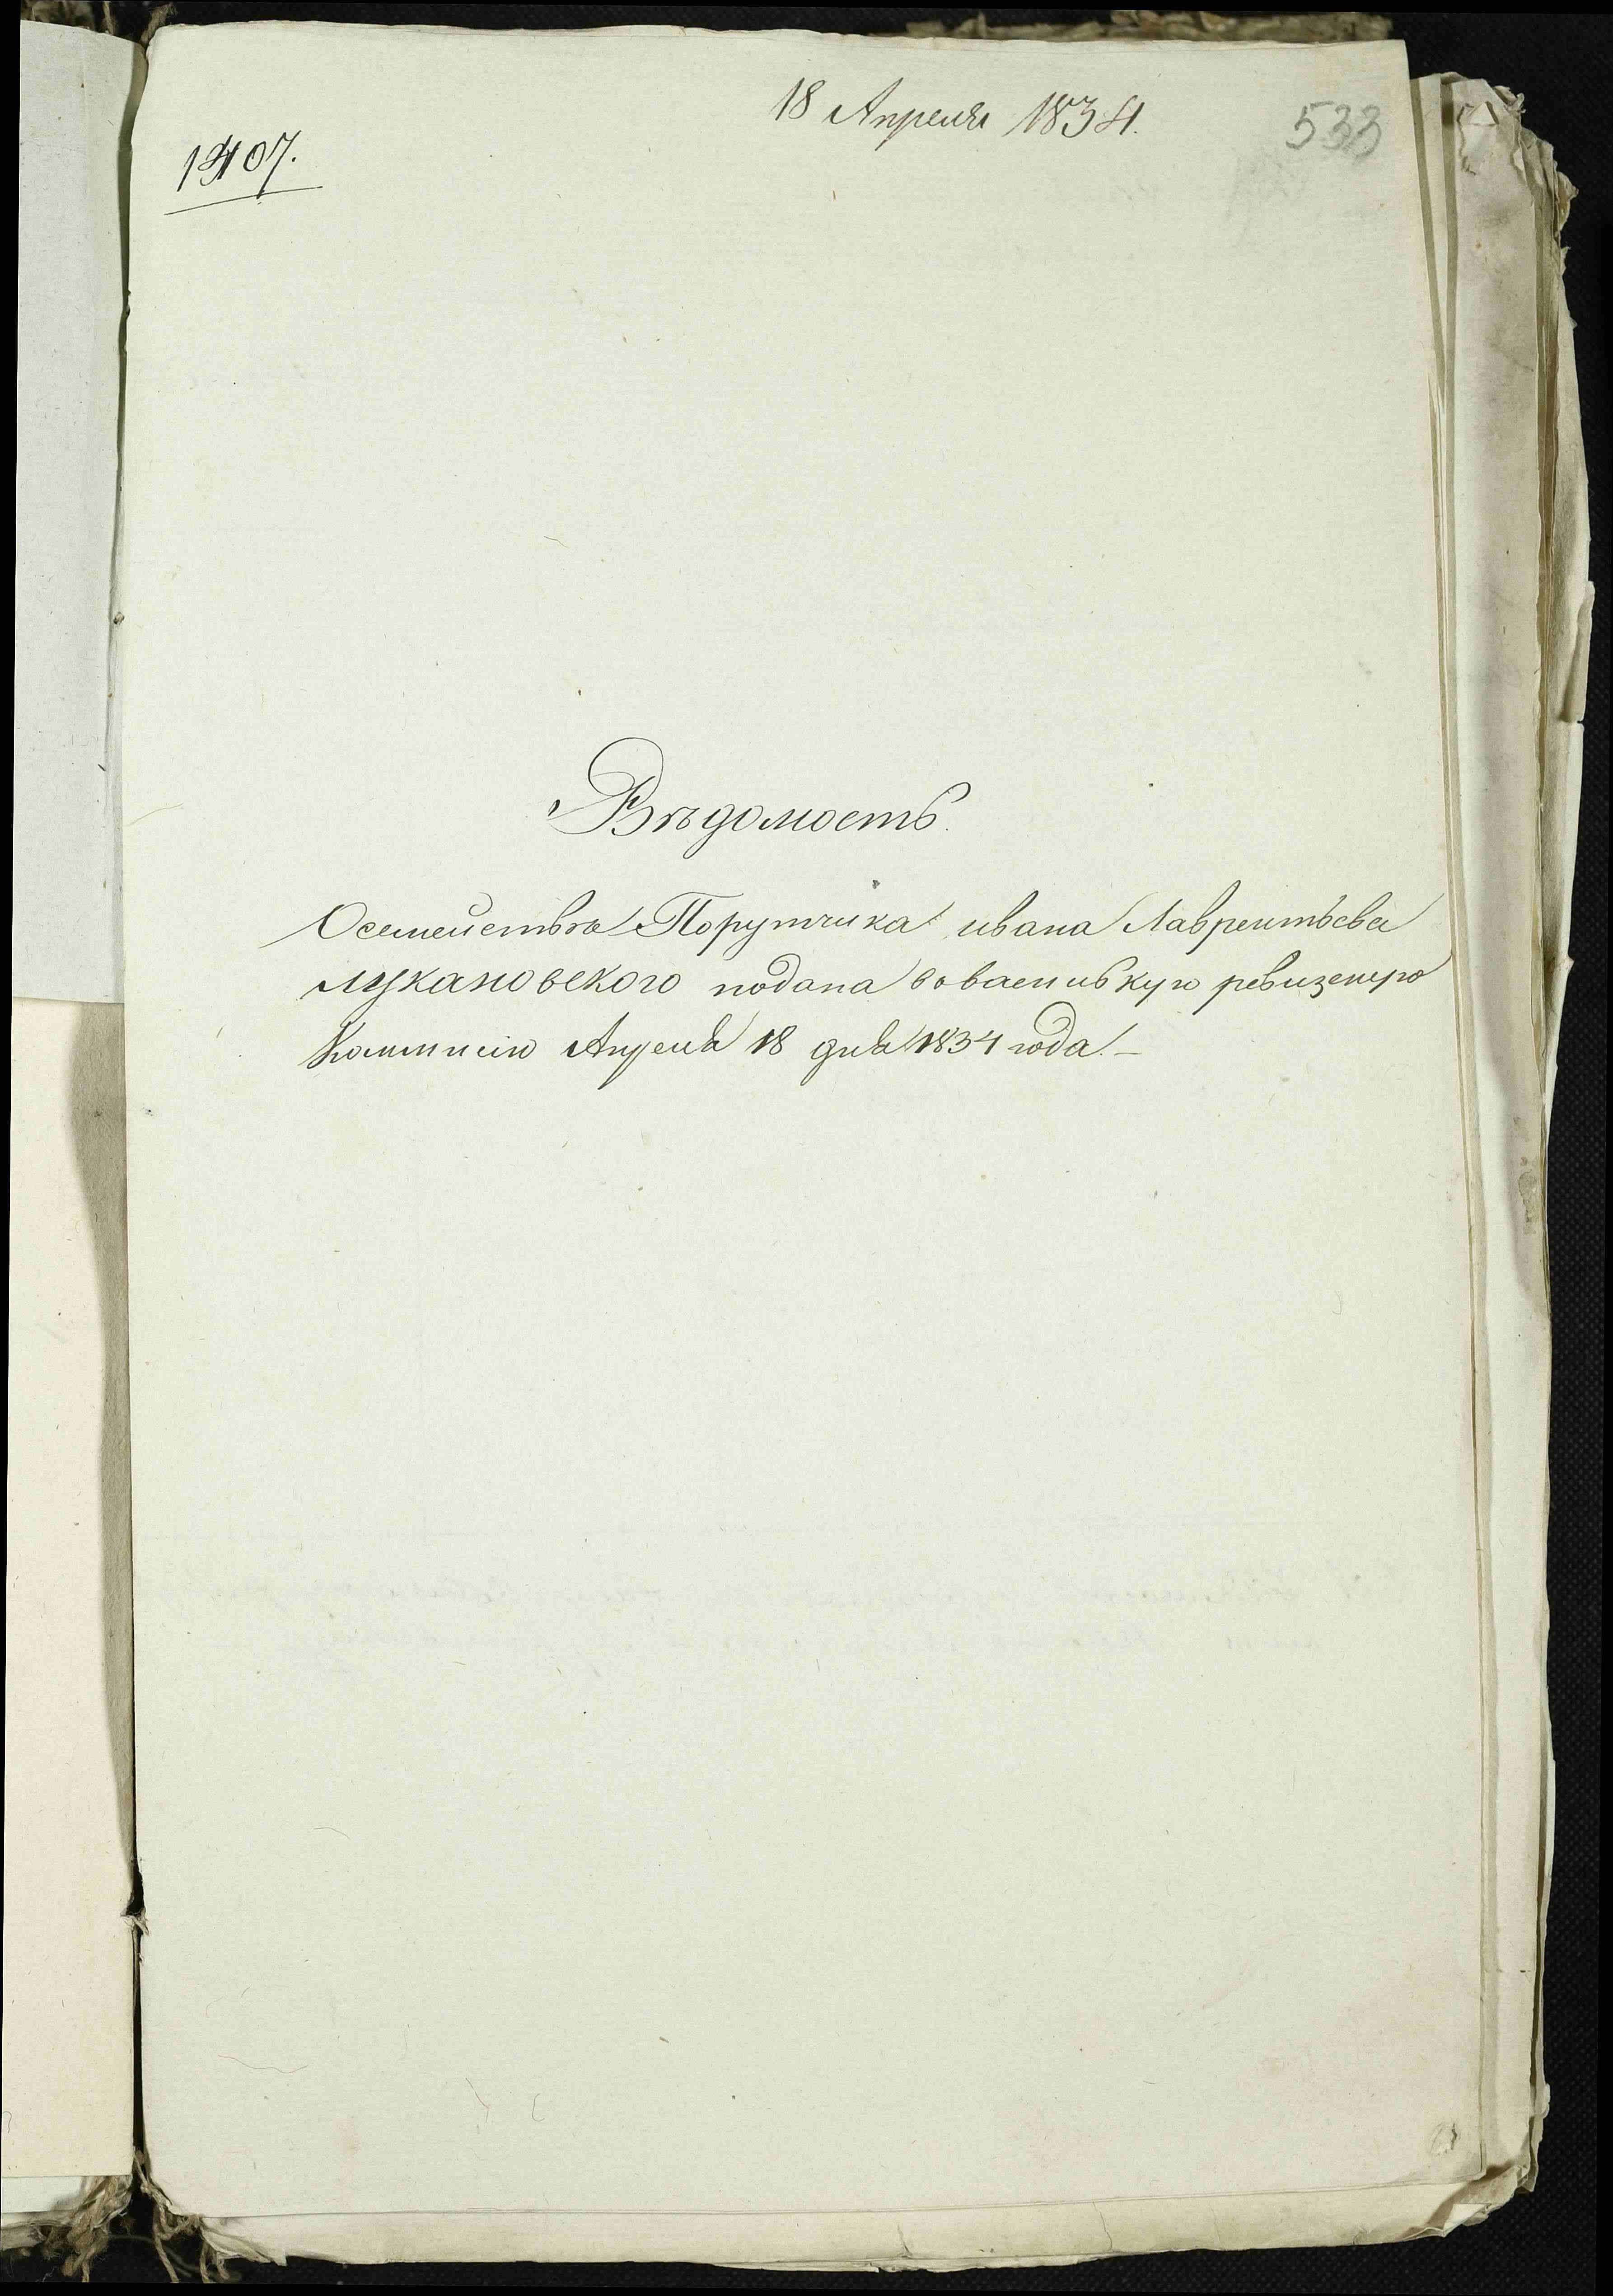 18 Апреля 1834.
533
1407.
Вѣдомость.
Осемействѣ Порутчика ивана Лаврентьева
Лукановского подана воваенивкую ревизскую
Коммисию Апреля 18 дня 1834 года.—